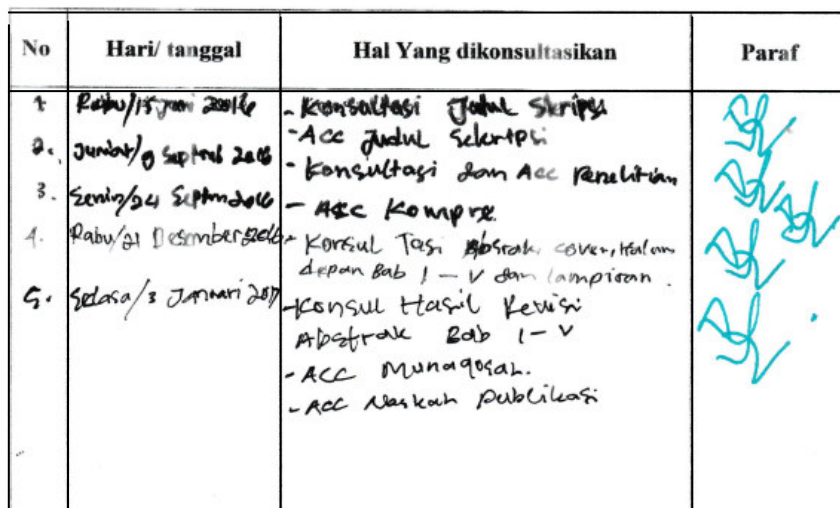 No Hari/ tanggal Hal Yang dikonsultasikan Paraf
1 Rabu/15 Juni 2016 - Konsultasi Judul Skripsi
- ACC Judul Sekripsi
2. Jumat/9 Septmb 2016 - Konsultasi dan Acc Penelitian
3. Senin/24 Septm 2016 - ACC Kompre
4. Rabu/21 Desember 2016 - Konsul Tasi Abstrak, cover, Halam
depan Bab I - V dan lampiran.
5. Selasa/3 Januari 2017 - Konsul Hasil Revisi
Abstrak Bab I - V
- ACC Munaqosah.
- ACC Naskah Publikasi